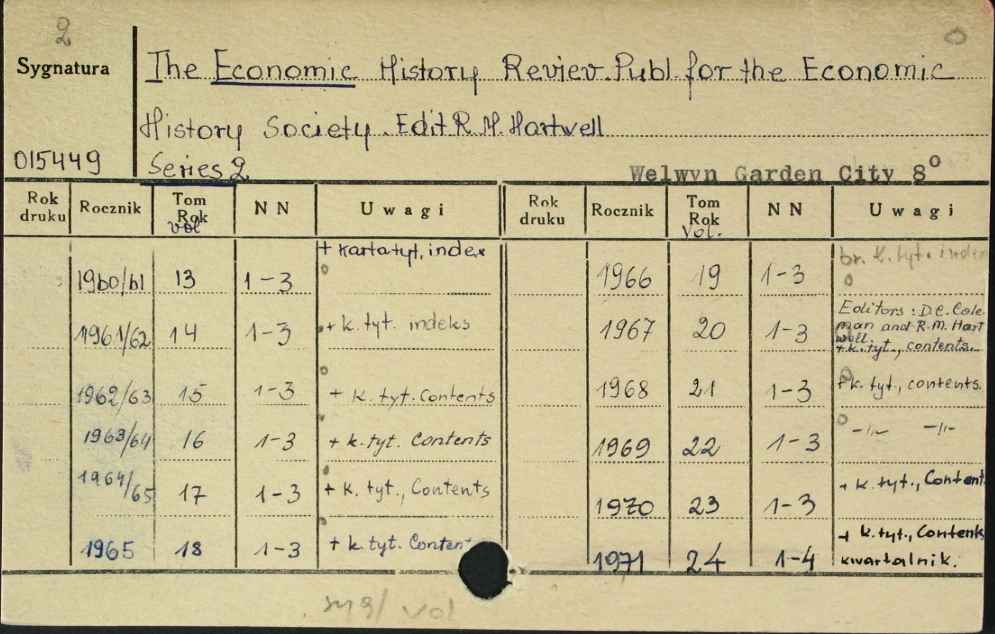 2
Sygnatura
The Economic History Review. Publ. for the Economic
History Society. Edit R. M. Hartwell
015449
Series 2
Welwyn Garden City 8°
Rok druku Rocznik Tom Rok Vol NN Uwagi Rok druku Rocznik Tom Rok Vol. NN Uwagi
1960/61 13 1-3 + karta tyt, index
1961/62 14 1-3 + k. tyt. indeks
1962/63 15 1-3 + k. tyt. Contents
1963/64 16 1-3 + k. tyt. Contents
1964/65 17 1-3 + k. tyt., Contents
1965 18 1-3 + k. tyt. Content
1966 19 1-3 br. k. tyt. i index
1967 20 1-3 Editors: D.C. Cole
man and R.M. Hart
well
+ k. tyt., contents.
1968 21 1-3 + k. tyt., contents.
1969 22 1-3 -"- -"-
1970 23 1-3 + k. tyt., Content
1971 24 1-4 + k. tyt., Contents
kwartalnik.
vol